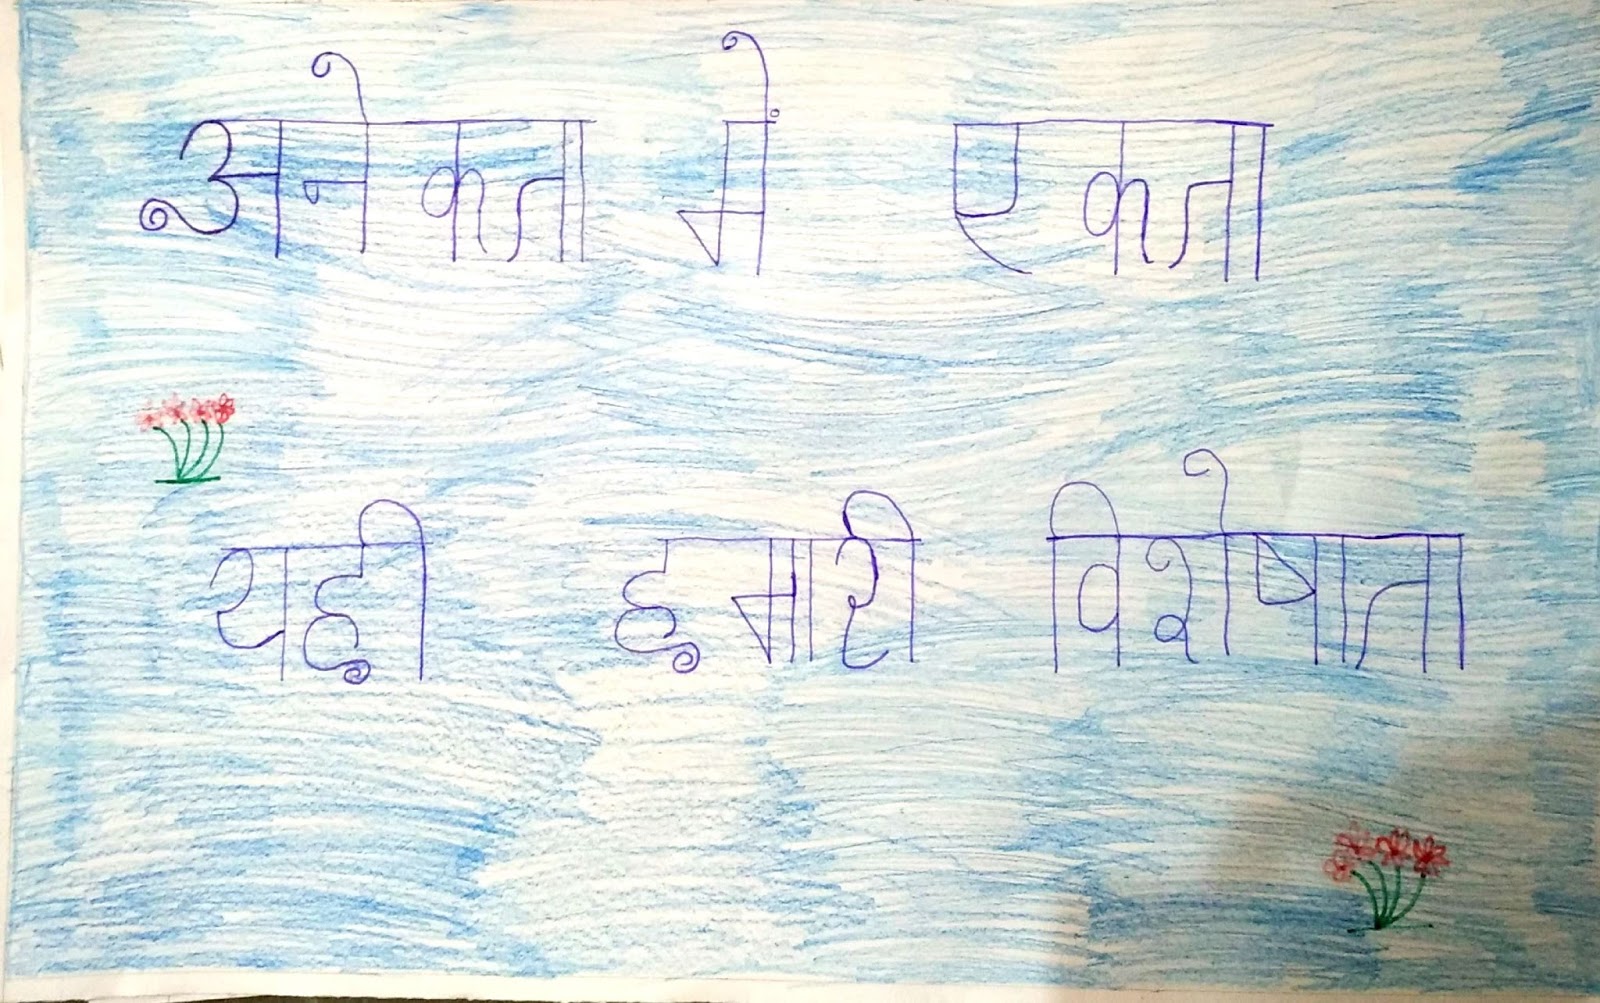 अनेकता में एकता
यही हमारी विशेषाता